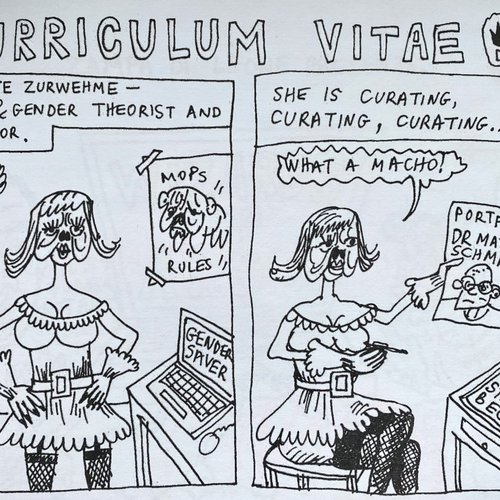 URRICULUM VITAE
TE ZURWEHME —
& GENDER THEORIST AND
OR.
MOPS
RULES
GENDER
SAVER
SHE IS CURATING,
CURATING, CURATING..
WHAT A MACHO!
PORTF
DR MA
SCHM